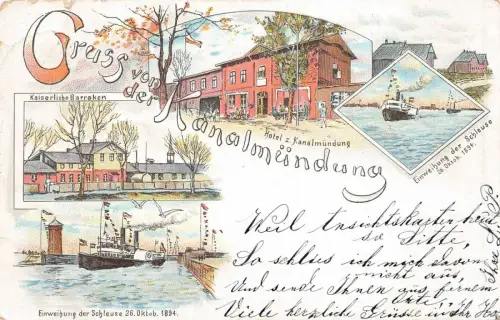 Gruss von
der
Kanalmündung
Kaiserliche Barraken
Hotel z. Kanalmündung
Einweihung der Schleuse
26. Oktob. 1894.
Einweihung der Schleuse 26. Oktob. 1894.
Weil Ansichtskarten
so Sitte,
So schlies ich mich davon
nicht aus,
Und sende Ihnen aus fernem
Orte,
Viele herzliche Grüsse in Ihr